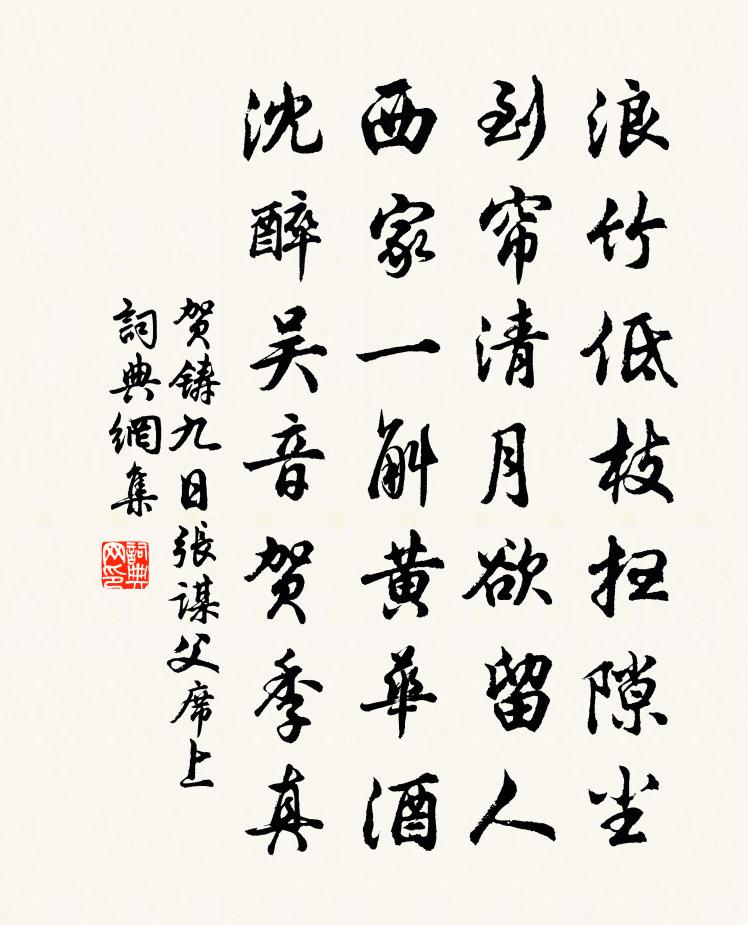 浪竹低枝扫隙尘
到帘清月欲留人
西家一斛黄華酒
沈醉吴音贺季真
贺鑄九日張謀父席上
詞典網集
詞典网印